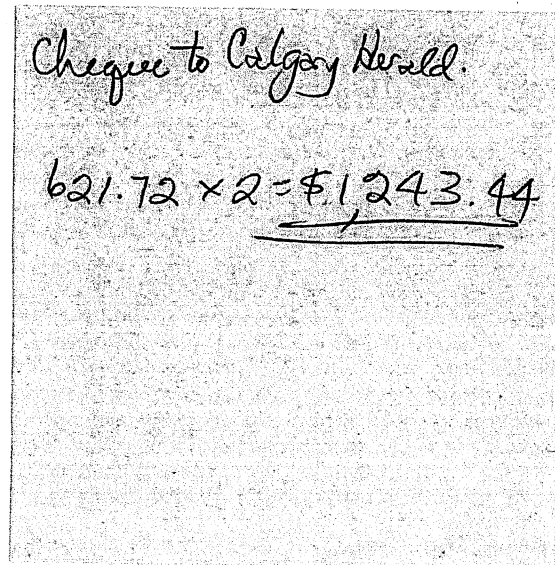 Cheque to Calgary Herald.
621.72 x 2 = $1,243.44